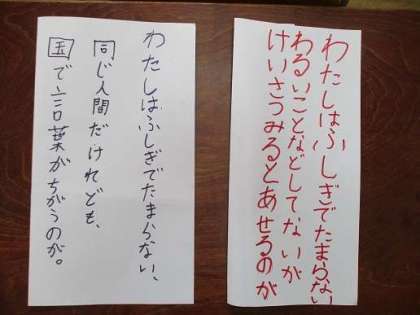 わたしはふしぎでたまらない
わるいことなどしてないが
けいさつみるとあせるのが
わたしはふしぎでたまらない、
同じ人間だけれども、
国で言葉がちがうのが。